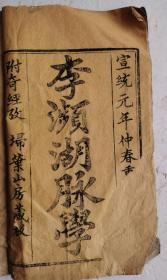 宣統元年仲春重
李瀕湖脉學
附奇經攷 掃葉山房藏板